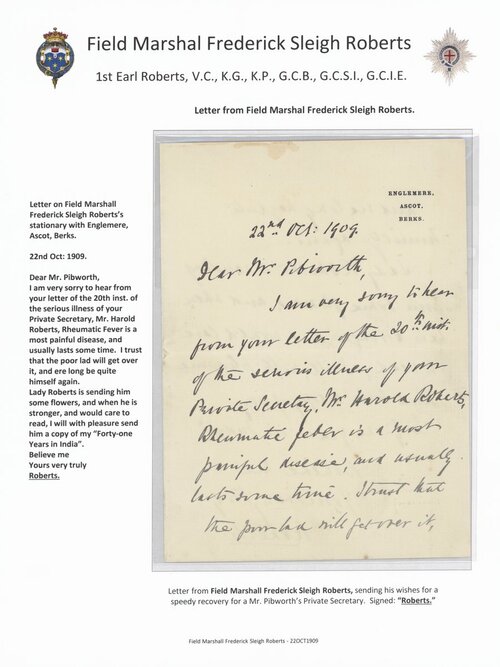 Field Marshal Frederick Sleigh Roberts
1st Earl Roberts, V.C., K.G., K.P., G.C.B., G.C.S.I., G.C.I.E.
Letter from Field Marshal Frederick Sleigh Roberts.
Letter on Field Marshall
Frederick Sleigh Roberts's
stationary with Englemere,
Ascot, Berks.
22nd Oct: 1909.
Dear Mr. Pibworth,
I am very sorry to hear from
your letter of the 20th inst. of
the serious illness of your
Private Secretary, Mr. Harold
Roberts, Rheumatic Fever is a
most painful disease, and
usually lasts some time.  I trust
that the poor lad will get over
it, and ere long be quite
himself again.
Lady Roberts is sending him
some flowers, and when he is
stronger, and would care to
read, I will with pleasure send
him a copy of my "Forty-one
Years in India".
Believe me
Yours very truly
Roberts.
ENGLEMERE,
ASCOT,
BERKS.
22nd Oct: 1909.
Dear Mr. Pibworth,
I am very sorry to hear
from your letter of the 20th inst:
of the serious illness of your
Private Secretary, Mr. Harold Roberts,
Rheumatic fever is a most
painful disease, and usually
lasts some time. I trust that
the poor lad will get over it,
Letter from Field Marshall Frederick Sleigh Roberts, sending his wishes for a
speedy recovery for a Mr. Pibworth's Private Secretary.  Signed: "Roberts."
Field Marshal Frederick Sleigh Roberts - 22OCT1909